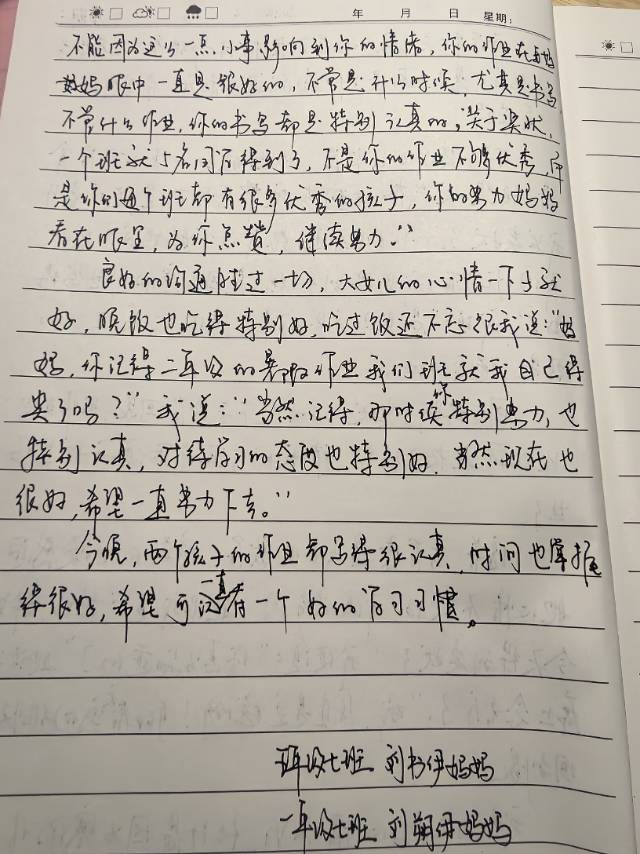 年 月 日 星期:
不能因为这么一点小事影响到你的情绪,你的作业在妈
妈眼中一直是很好的,不管是什么时候,尤其是书写
不管什么作业,你的书写都是特别认真的。关于奖状,
一个班就5名同学得到了,不是你的作业不够优秀,而
是你们这个班都有很多优秀的孩子,你的努力妈妈
看在眼里,为你点赞,继续努力。"
良好的沟通胜过一切,大女儿的心情一下子就
好,晚饭也吃得特别好,吃过饭还不忘跟我说:"妈
妈,你记得二年级的暑假作业我们班就我自己得
奖了吗?"我说:"当然记得,那时候你特别努力,也
特别认真,对待学习的态度也特别好,当然现在也
很好,希望一直努力下去。"
今晚,两个孩子的作业都写得很认真,时间也掌握
得很好,希望可以一直有一个好的学习习惯。
年级七班 刘书伊妈妈
一年级七班 刘朔伊妈妈